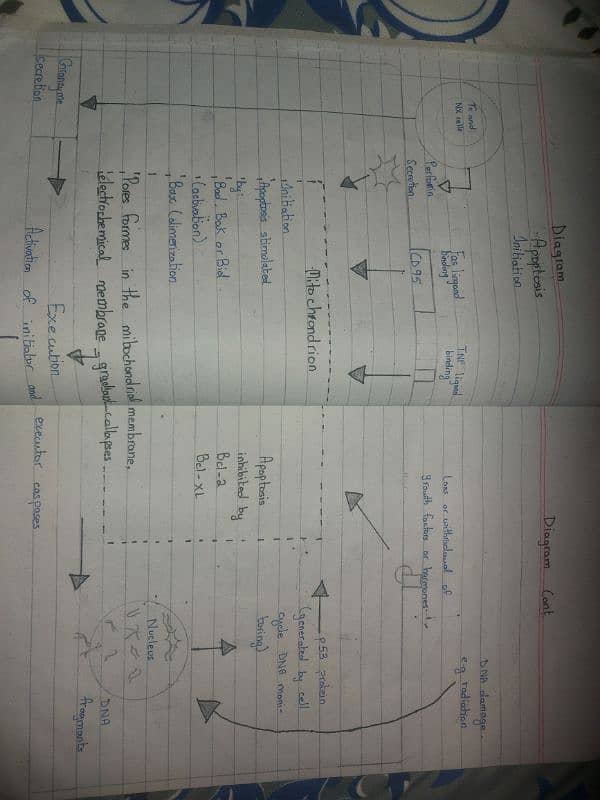 Diagram
Apoptosis
Initiation
Diagram Cont
Tc and
NK cells
Perforin
Secretion
Fas ligand
binding
CD95
TNF ligand
binding
Loss or withdrawal of
growth factors or hormones
DNA damage.
e.g radiation
Mitochrondrion
Initiation
Apoptosis stimulated
by:
Bad, Bak or Bid
(activation)
Bax (dimerization
Apoptosis
inhibited by
Bcl-2
Bcl-XL
p53 protein
(generated by cell
cycle DNA moni-
toring)
Pores formes in the mitochondrial membrane,
electrochemical membrane gradient collapses
Nucleus
DNA
fragments
Granzyme
secretion
Execution
Activation of initiator and executor caspases